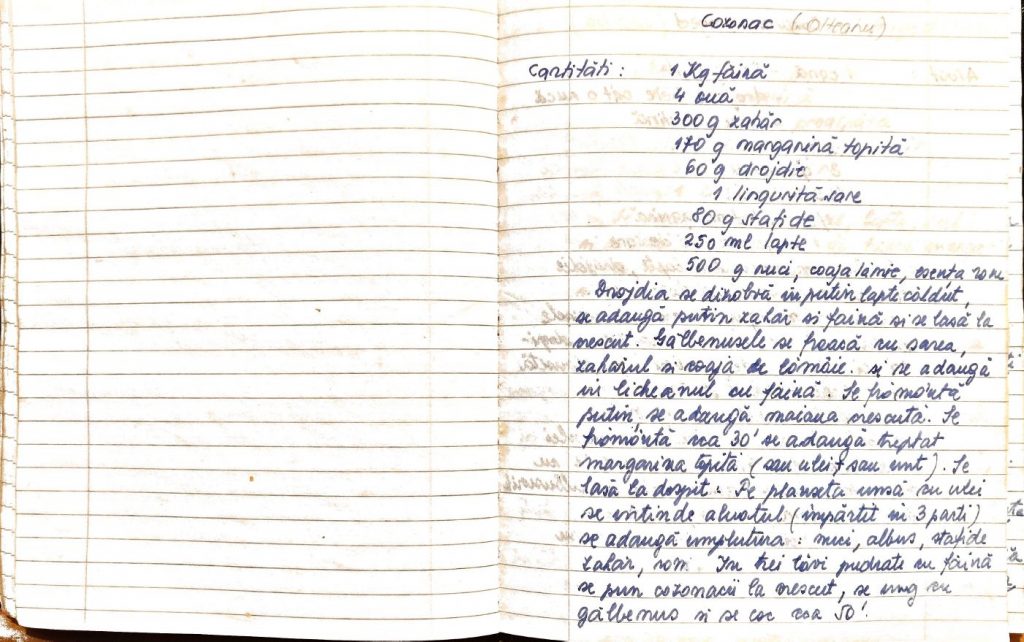 Cozonac (Olteanu)
Cantităti : 1 Kg făină
4 ouă
300 g zahăr
170 g margarină topită
60 g drojdie
1 linguriță sare
80 g stafide
250 ml lapte
500 g nuci, coaja lămîie, esența rom
Drojdia se dizolvă in putin lapte căldut,
se adaugă putin zahăr si faină si se lasă la
crescut. Gălbenusele se freacă cu sarea,
zahărul si coaja de lămâie. si se adaugă
in licheanul cu făină. Se frământă
putin, se adaugă maiaua crescută. Se
frământă cca 30' se adaugă treptat
margarina topită (sau ulei + sau unt). Se
lasă la dospit. Pe planseta unsă cu ulei
se intinde aluatul (împărtit in 3 parti)
se adaugă umplutura : nuci, albus, stafide
zahăr, rom. In trei tăvi pudrate cu făină
se pun cozonacii la crescut, se ung cu
gălbenus si se coc cca 50'.